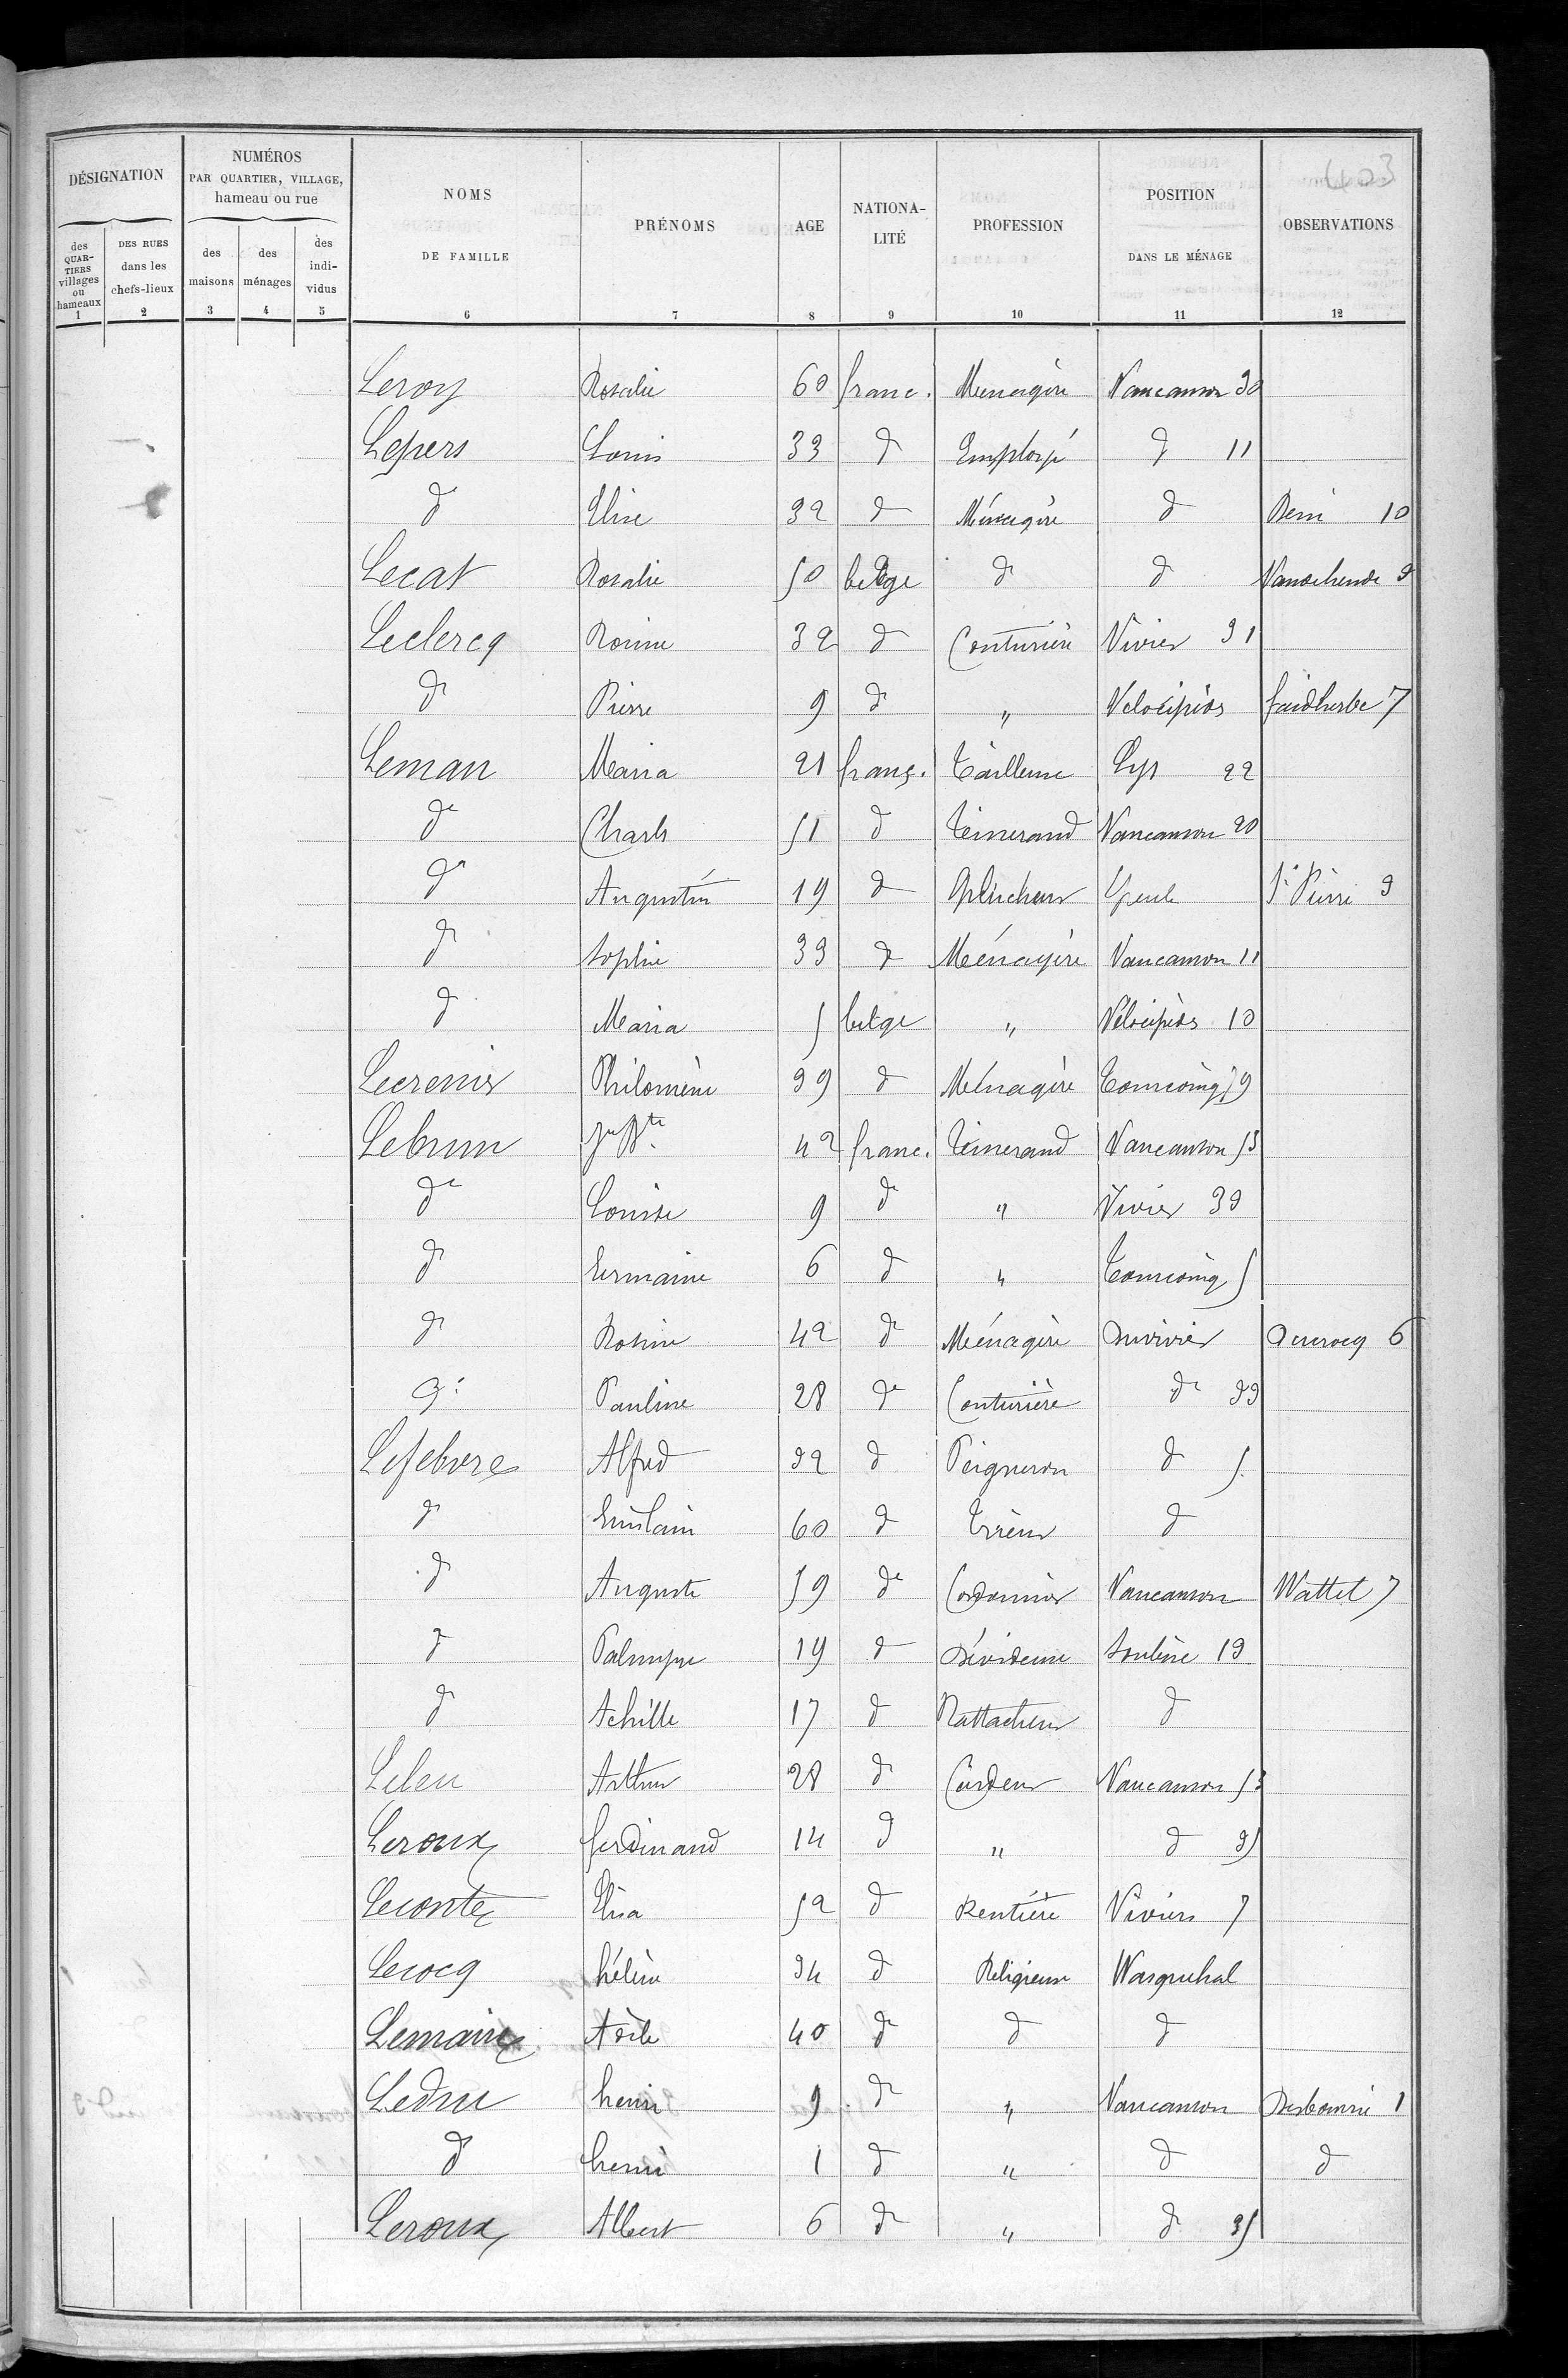 403
DÉSIGNATION
NUMÉROS
PAR QUARTIER, VILLAGE,
hameau ou rue
NOMS
DE FAMILLE
PRÉNOMS
AGE
NATIONA-
LITÉ
PROFESSION
POSITION
DANS LE MÉNAGE
OBSERVATIONS
des QUAR-TIERS villages ou hameaux
DES RUES dans les chefs-lieux
des maisons
des ménages
des indi-vidus
1 2 3 4 5 6 7 8 9 10 11 12
Leroy Rosalie 60 franc. Menagère Vaucanson 30
Lepers Louis 33 d Employé d 11
d Elise 32 d Ménagère d 10
Lecat Rosalie 50 belge d d
Leclercq Rosine 32 d Couturière Vivier 31
d Pierre 9 d " Velocipèds faidherbe 7
Leman Maria 21 franç. Tailleuse Lys 22
de Charls 51 d Teinerand Vaucanson 20
d Augustin 19 d St Pierre 9
d Sophie 33 d Ménagère Vaucanson 11
d Maria 5 belge " Vélocipèds 10
Philomène 39 d Ménagère Tourcoing 79
Lebrun Jn Bte. 42 franc. Teinerand Vaucanson 53
de Louise 9 d " Vivier 39
d Germaine 6 d " Tourcoing 5
d Rosine 42 d Ménagère Duvivier 6
d Pauline 28 de Couturière d 33
Lefebvre Alfred 32 d Peigneron d 5
d Guislain 60 d Trieur d
d Auguste 59 de Cordonnier Vaucanson Wattel 7
d Palmyre 19 d Dévideuse Soubise 19
d Achille 17 d Rattacheur d
Leleu Arthur 28 d Cardeur Vaucanson 53
Leroux ferdinand 14 d " d 35
Leconte Elisa 52 d Rentière Viviers 7
Lecocq hélène 34 d Religieuse Wasquehal
Lemaire Adèle 40 d d d
Leduc henri 9 d " Vaucanson 1
d henri 1 d " d d
Leroux Albert 6 d " d 35